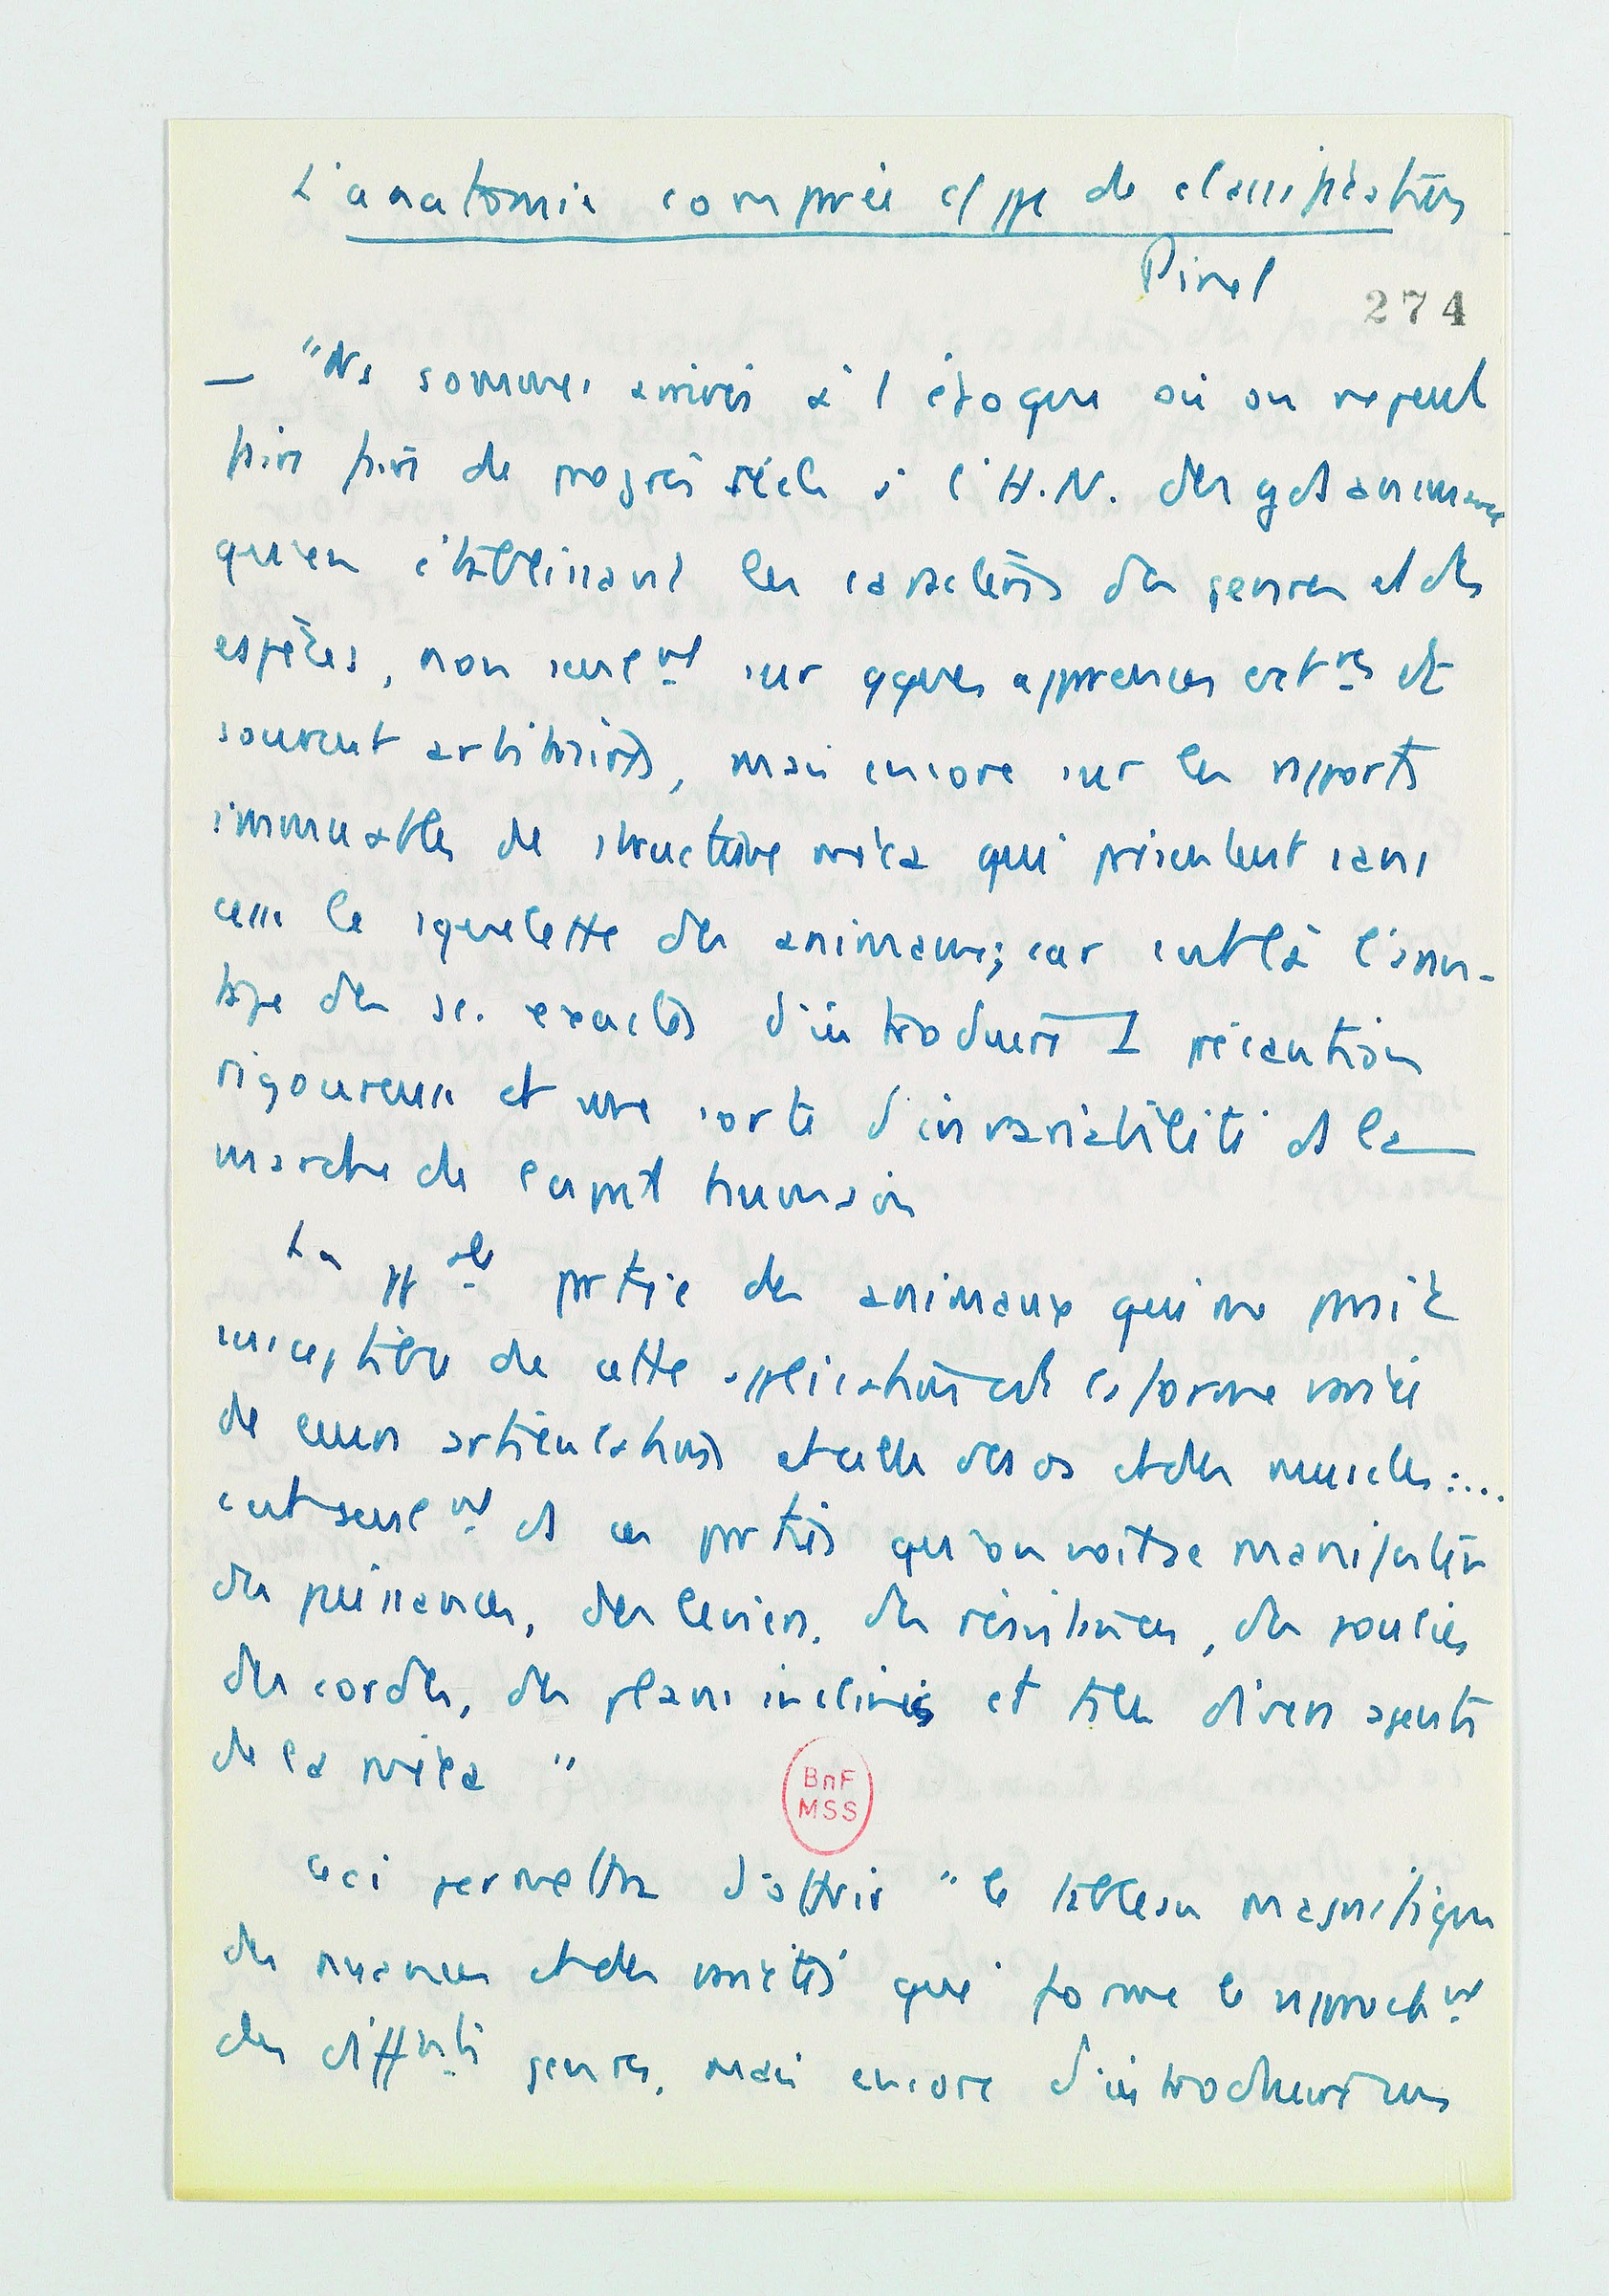 L'anatomie comprée c/ ppe de classification
Pinel
274
— "Ns sommes arrivés à l'époque où on ne peut
faire faire de progrès réels à l'H.N. des gds animaux
qu'en établissant les caractères des genres et des
espèces, non seulemt sur qques apprences extres et
souvent arbitraires, mais encore sur les rapports
immuables de structure méca qui présentent sans
cesse le squelette des animaux; car c'est là l'avan-
tage des sc. exactes d'introduire 1 précaution
rigoureuse et une sorte d'invariabilité ds la
marche de l'esprit humain
La ppale prtie des animaux qui me paraît
susceptible de cette application est la forme variée
de leurs articulations et celle des os et des muscles :...
c'est seulemt ds ces prties qu'on voit se manifester
des puissances, des leviers, des résistances, des poulies
des cordes, des plans inclinés et tels divers agents
de la méca "
Ceci permettra d'offrir "le tableau magnifique
des nuances et des variétés que forme le rapprochemt
des difffrts genres, mais encore d'introduire une
BnF
MSS